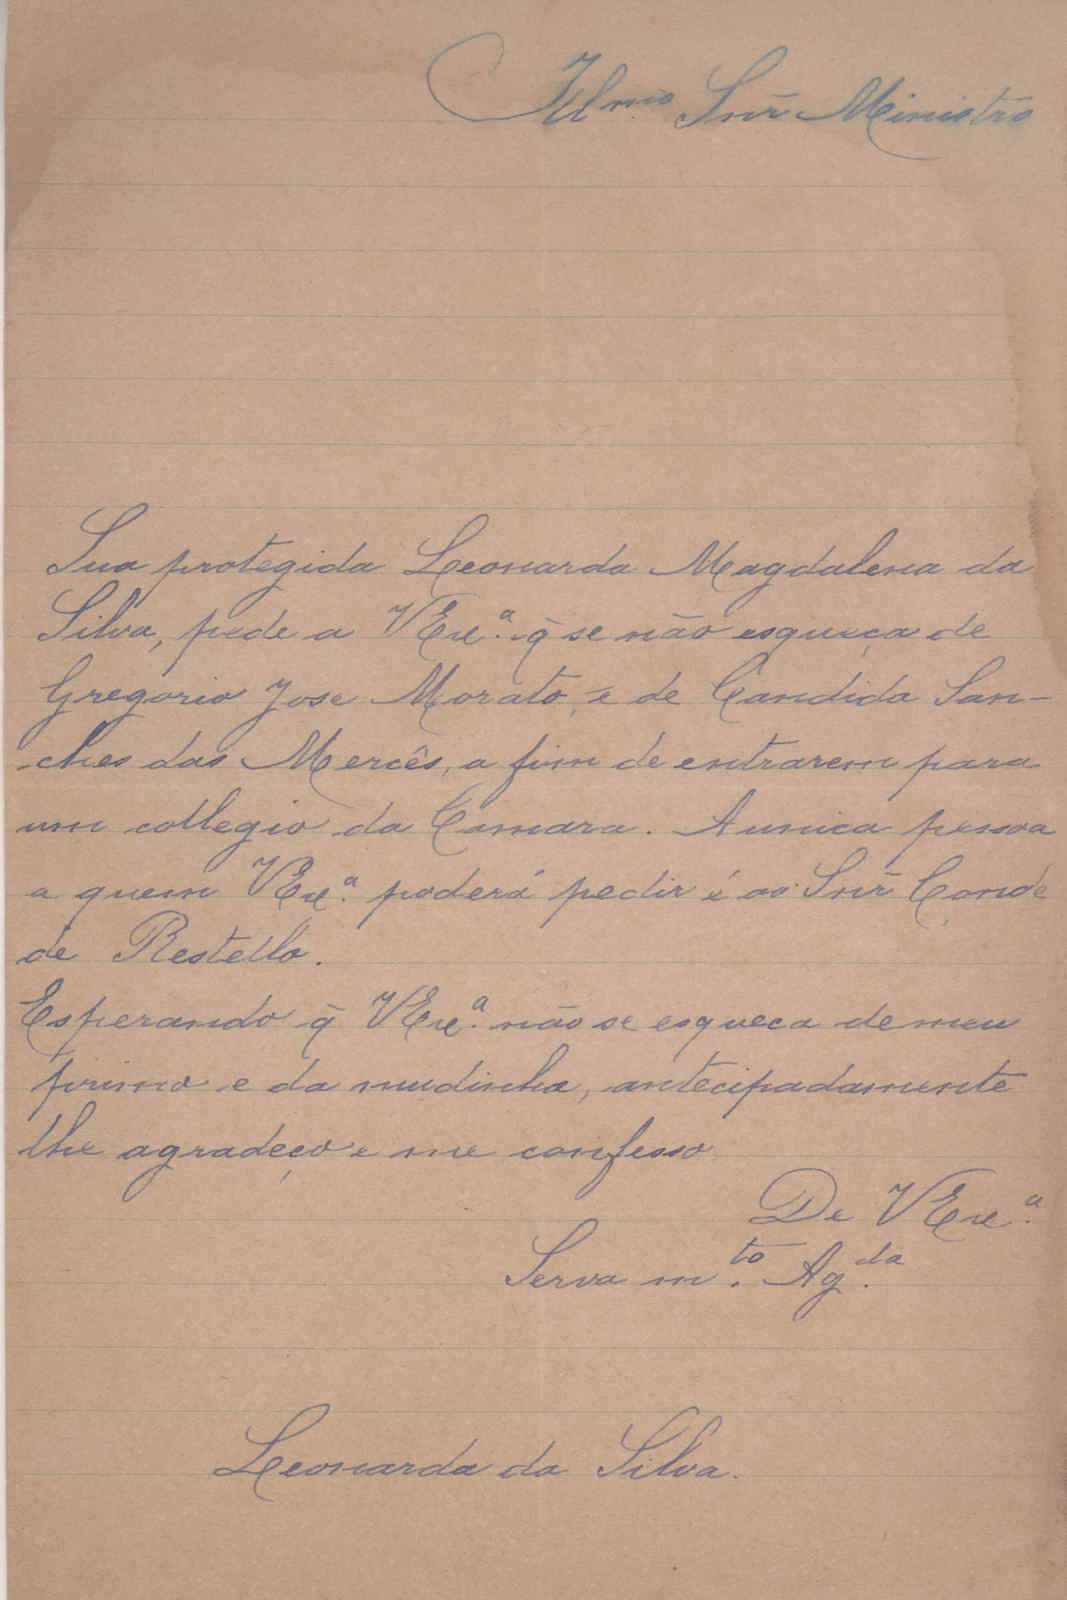 Illmo. Snr̃ Ministro
Sua protegida Leonarda Magdalena da
Silva, pede a VExcª. q̃ se não esqueça de
Gregorio Jose Morato, e de Candida San-
ches das Mercês, a fim de entrarem para
um collegio da Camara. A unica pessoa
a quem VExcª. poderá pedir é ao Snr̃ Conde
de Restello.
Esperando q̃ VExcª. não se esqueca de meu
primo e da mudinha, antecipadamente
lhe agradeço e me confesso
De VExcª.
Serva m.to Ag.da
Leonarda da Silva.